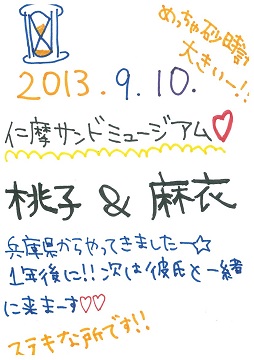 めっちゃ砂時計
大きいー!!
2013.9.10.
仁摩サンドミュージアム♡
桃子 & 麻衣
兵庫県からやってきましたー☆
1年後に!!次は彼氏と一緒
に来まーす♡♡
ステキな所です!!